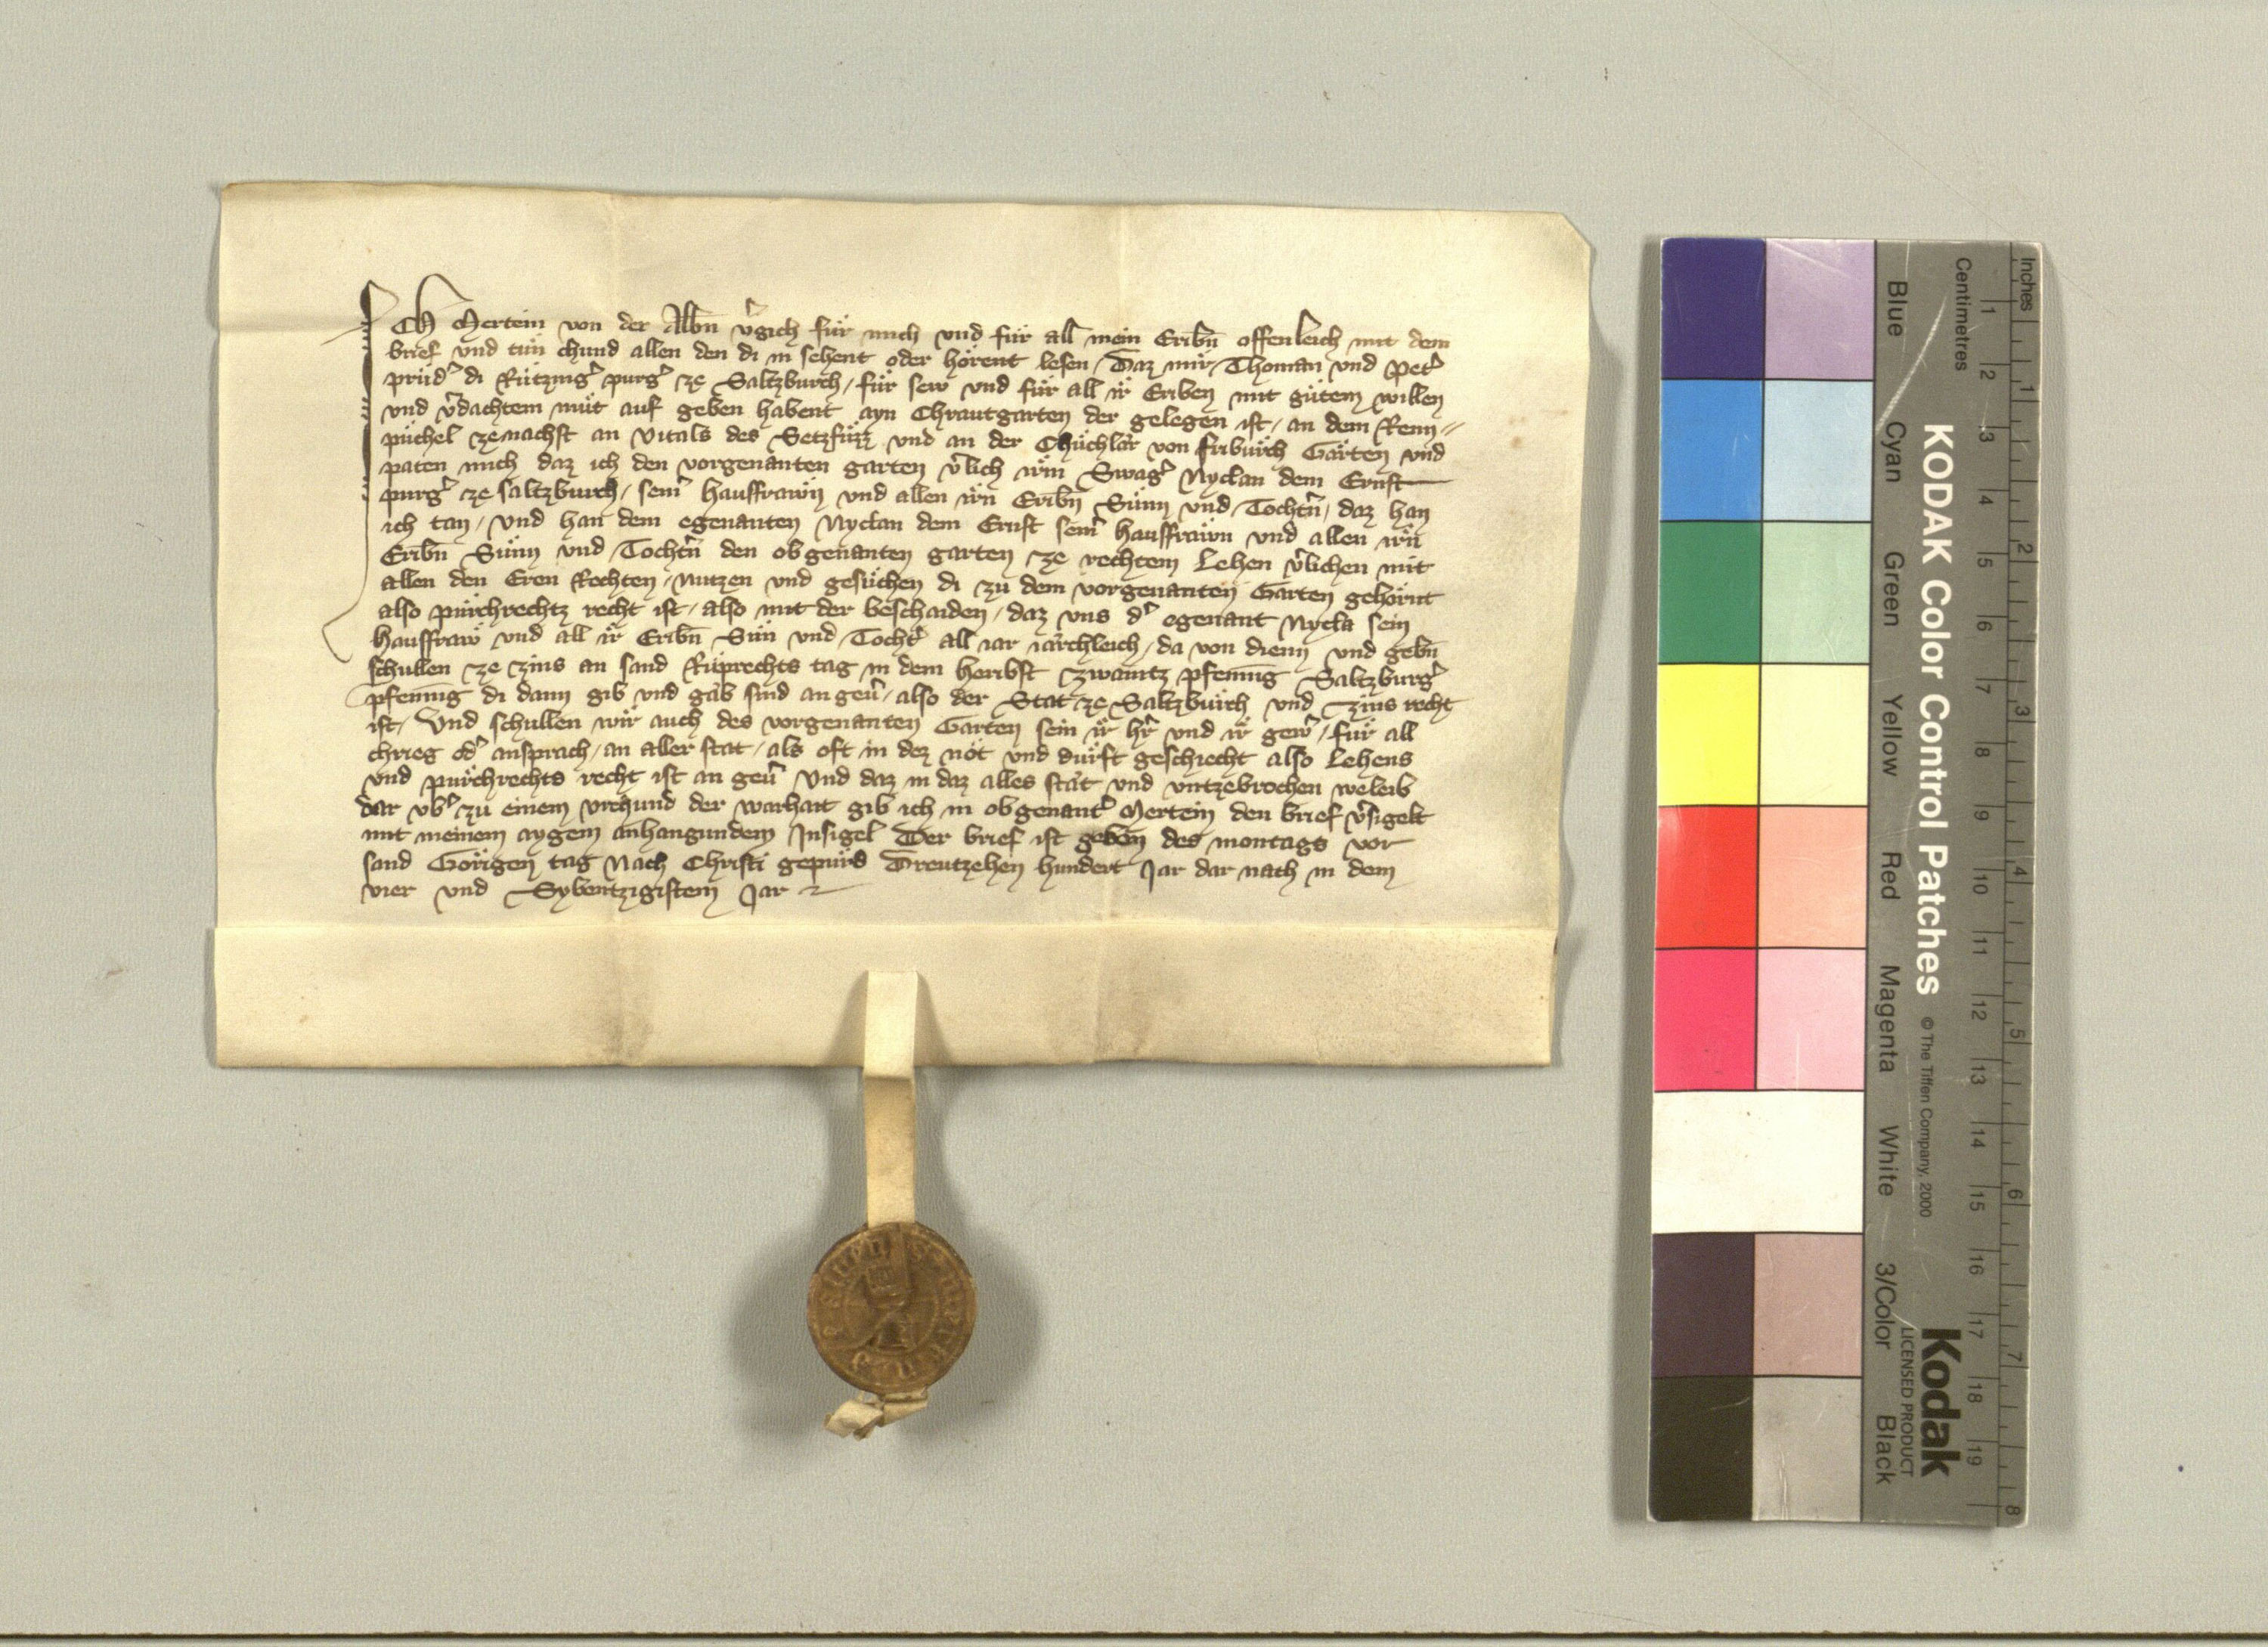 Ich Mertein von der Albn̄ v̾gich fuͤr mich vnd fuͤr all mein Eribn̄ offenleich mit dem
brief vnd tuͤn chund allen den di in sehent oder hoͤrent lesen / Daz mir / Thoman vnd Pet̾
pruͤd̾ di purg̾ ze Saltzburch / fuͤr sew vnd fuͤr all ir Eriben mit guͤtem willen
vnd v̾dachtem muͤt auf geben habent ayn Chrautgarten der gelegen ist / an dem Renn=
puͤchel zenachst an Vitals des vnd an der von friburch Gaͤrten vnd
paten mich daz ich den vorgenanten garten v̾lich irm Swag̾ Nyclan dem Ernst
purg̾ ze saltzburch / seinr̾ hauffrawn̄ vnd allen irn Eribn̄ Suͤnn vnd Tochtn̾ / daz han
ich tan / vnd han dem egenanten Nyclan dem Ernst seinr̾ hauffrawn vnd allen irn
Eribn̄ Suͤnn vnd Tochtn̾ den obgenanten garten ze rechtem Lehen v̾lichen mit
allen den Eren Rechten / Nutzen vnd gesuͤchen di zu dem vorgenanten Garten gehoͤrnt
also purchrechtz recht ist / also mit der beschaiden / daz vns d̾ egenant Nycla sein
hauffraw vnd all ir Eribn̄ Suͤn vnd Tocht̾ all iar iaͤrchleich / da von dienn vnd gebn̄
schullen ze zins an sand Ruͤprechts tag in dem heribst zwaintz pfenning Saltzburg̾
pfenning di dann gib vnd gaͤb sind an geu̾ / also der Stat ze Saltzburch vnd zins recht
ist / Vnd schullen wir auch des vorgenanten Garten sein ir hr̾ vnd ir gew̾ / fuͤr all
chrieg od̾ ansprach / an aller stat / als oft in dez noͤt vnd duͤrft geschiecht also Lehens
vnd purchrechts recht ist an geu̾ Vnd daz in daz alles staͤt vnd vntzebrochen weleib
dar vb̾ zu einem vrchund der warhait gib ich in obgenant̾ Mertein den brief v̾sigelt
mit meinem aygem anhangundem Insigel Der brief ist geben des montags vor
sand Goͤrigen tag Nach Christi gepurd Dreutzehen hundert Jar dar nach in dem
vier vnd Sybentzigistem Jar
KODAK Color Control Patches
© The Tiffen Company, 2000
Kodak
LICENSED PRODUCT
Blue Cyan Green Yellow Red Magenta White 3/Color Black
Centimetres 1 2 3 4 5 6 7 8 9 10 11 12 13 14 15 16 17 18 19
Inches 1 2 3 4 5 6 7 8